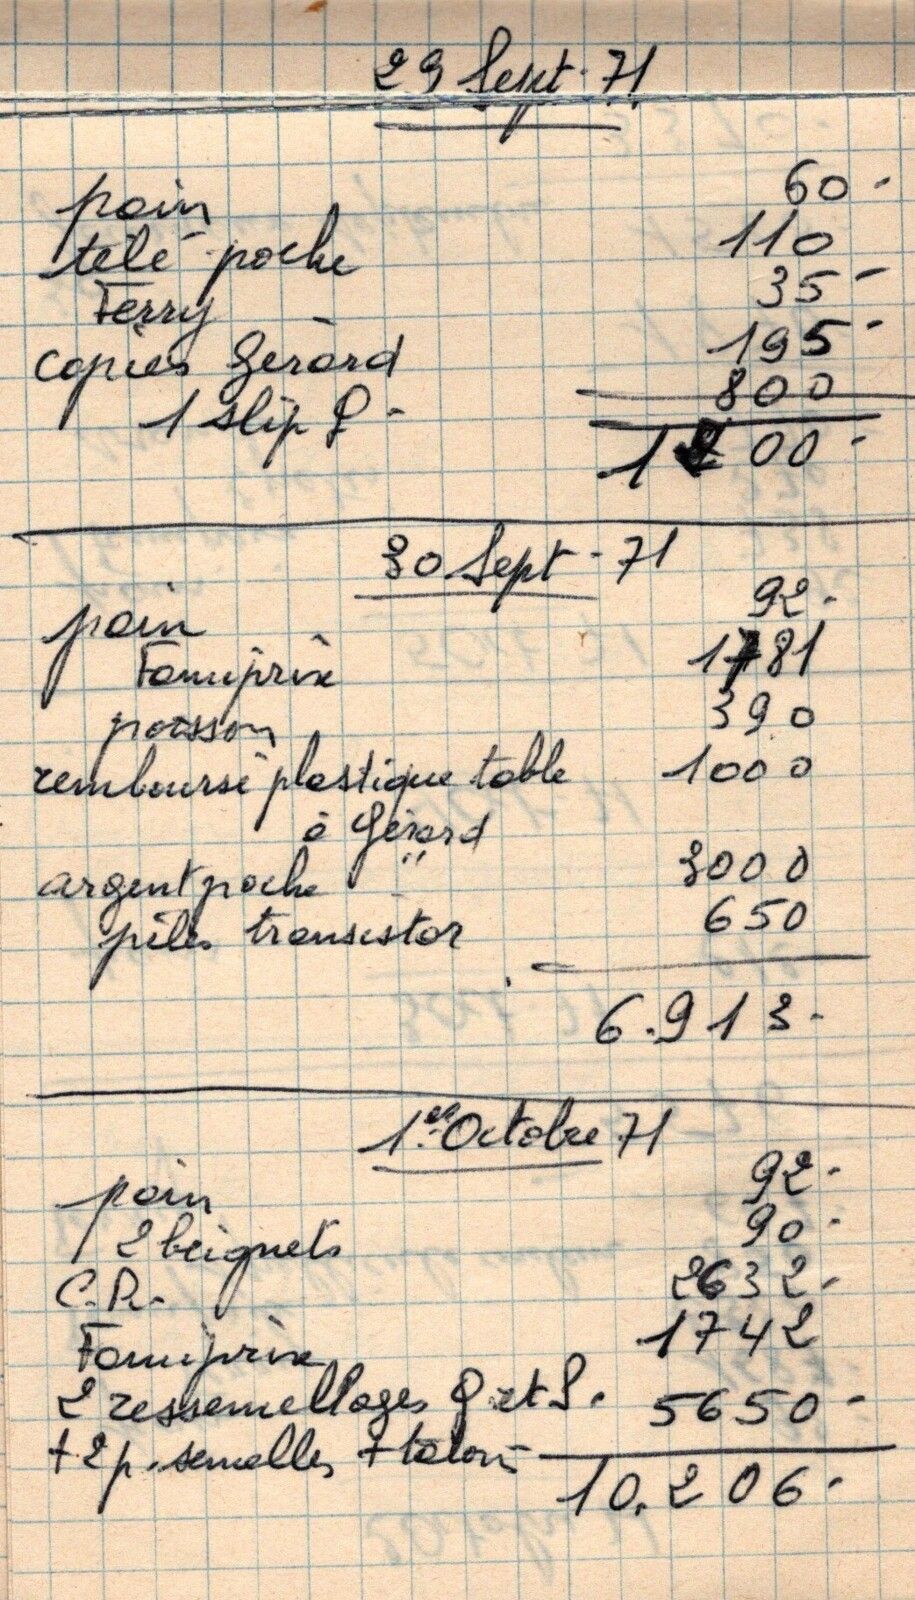 29 Sept. 71
pain 60.-
télé poche 110
Ferry 35-
copies Gérard 195-
1 slip P- 800
1200-
30 Sept - 71
pain 92.
Famiprix 1781
poisson 390
remboursé plastique table 1000
à Gérard
argent poche " 3000
piles transistor 650
6.913-
1er Octobre 71
pain 92-
2 beignets 90-
C.R. 2632-
Famiprix 1742
2 ressemellages P et S. 5650-
+ 2 p. semelles + talons
10.206-